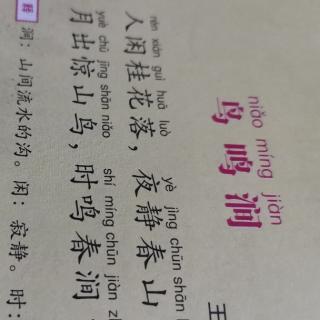 niǎo míng jiàn
鸟鸣涧
王
rén xián guì huā luò yè jìng chūn shān
人闲桂花落，夜静春山
yuè chū jīng shān niǎo shí míng chūn jiàn zh
月出惊山鸟，时鸣春涧
释
涧：山间流水的沟。闲：寂静。时：